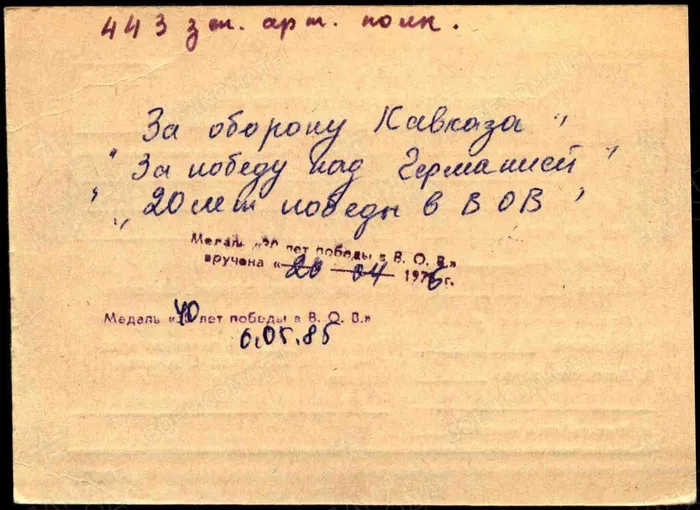 443 зт. арт. полк.
За оборону Кавказа"
"За победу над Германией"
" „20 лет победы в ВОВ"
Медаль «30 лет победы в В. О. В.»
вручена «20 04 1976 г.
Медаль «40 лет победы в В. О. В.»
6.05.85